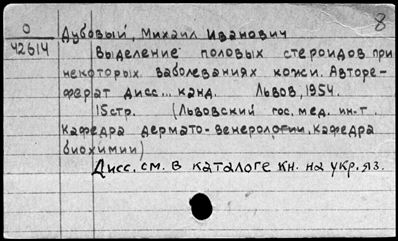 О
42614
8
Дубовый, Михаил Иванович
Выделение половых стероидов при
некоторых заболеваниях кожи. Авторе-
ферат дисс... канд. Львов, 1954.
15стр. (Львовский гос. мед. ин-т.
Кафедра дермато-венерологии. Кафедра
биохимии)
Дисс. см. в каталоге кн. на укр. яз.